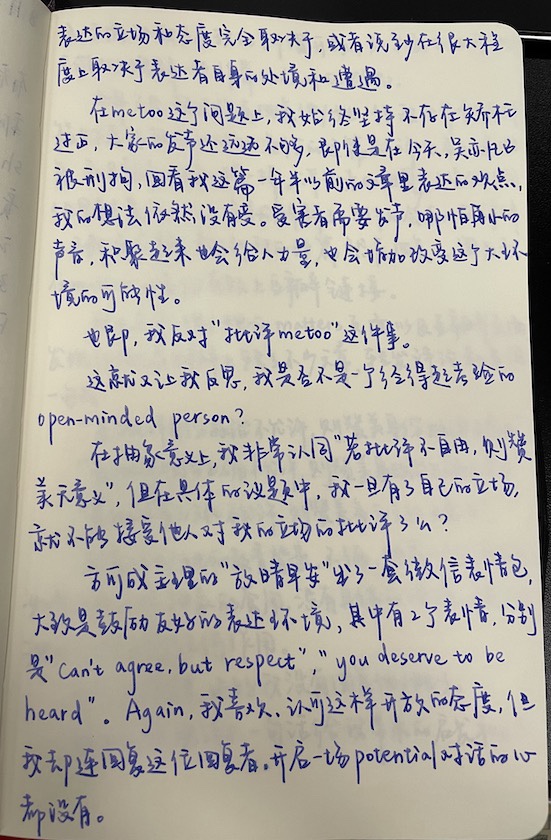 表达的立场和态度完全取决于,或者说至少在很大程
度上取决于表达者自身的处境和遭遇。
在metoo这个问题上,我始终坚持不存在矫枉
过正,大家的发声还远远不够,即使是在今天,吴亦凡已
被刑拘,回看我这篇一年半以前的文章里表达的观点,
我的想法依然没有变。受害者需要发声,哪怕再小的
声音,积聚起来也会给人力量,也会增加改变这个大环
境的可能性。
也即,我反对"批评metoo"这件事。
这就又让我反思,我是否不是一个经得起考验的
open-minded person?
在抽象意义上,我非常认同"若批评不自由,则赞
美无意义",但在具体的议题中,我一旦有了自己的立场,
就不能接受他人对我的立场的批评了么?
方可成主理的"放晴早安"出了一套微信表情包,
大致是鼓励友好的表达环境,其中有2个表情,分别
是"can't agree, but respect","you deserve to be
heard"。Again,我喜欢、认可这样开放的态度,但
我却连回复这位回复者,开启一场potential对话的心
都没有。